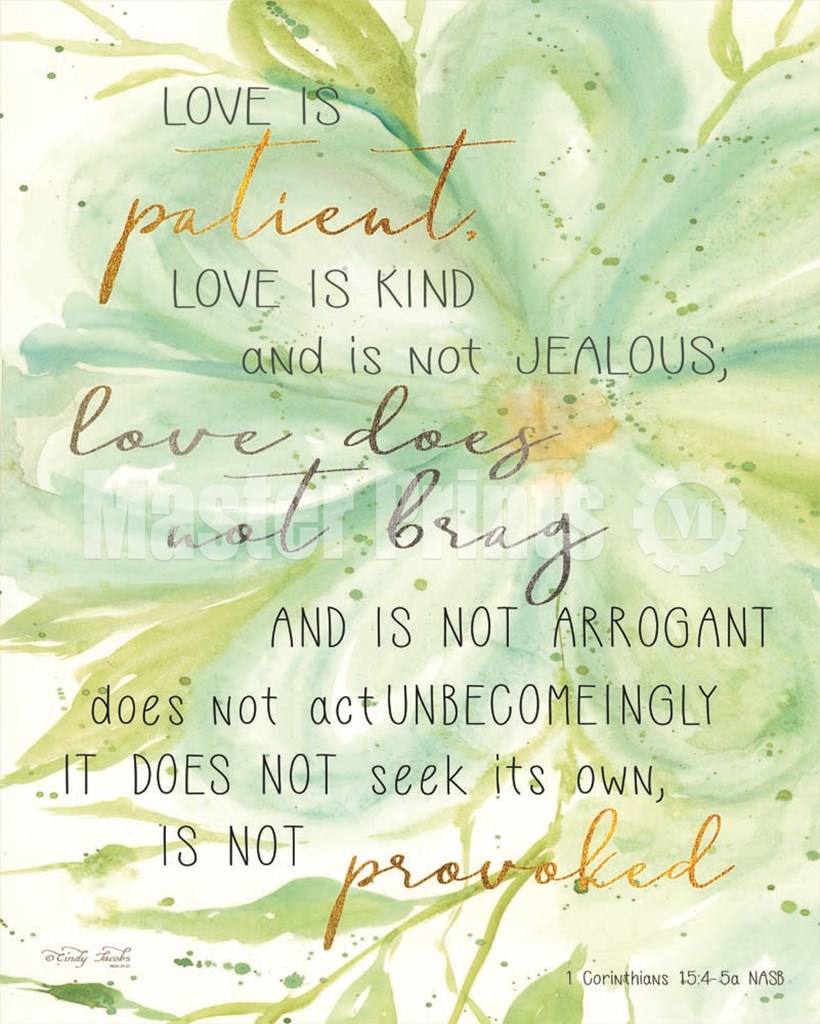 LOVE IS
patient,
LOVE IS KIND
and is not JEALOUS;
love does
not brag
Master Prints M
AND IS NOT ARROGANT
does not act UNBECOMEINGLY
IT DOES NOT seek its own,
IS NOT
provoked
©Cindy Jacobs
1 Corinthians 15:4-5a NASB